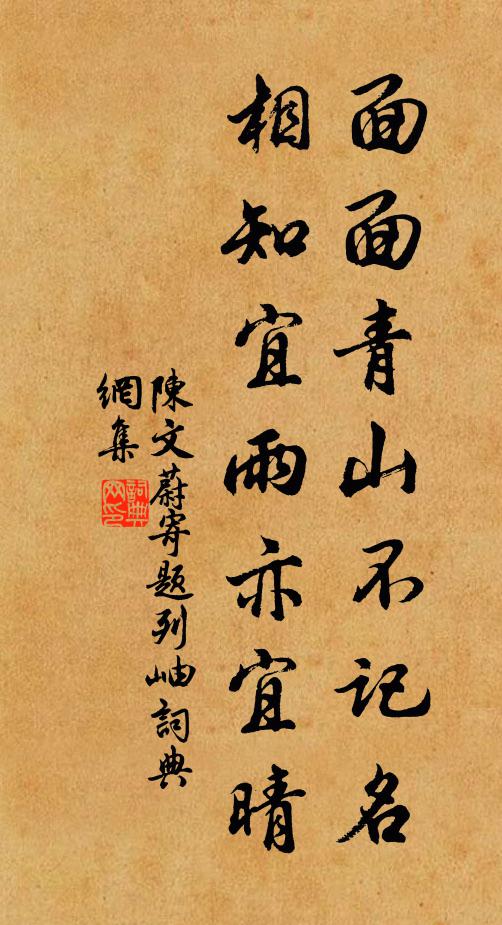 面面青山不记名
相知宜雨亦宜晴
陳文蔚寄题列岫詞典
網集
詞典網印